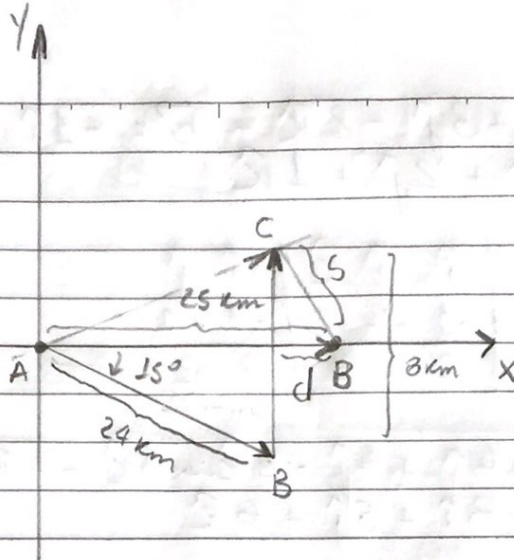 Y
C
S
25 km
A
15°
d
B
8 km
X
24 km
B